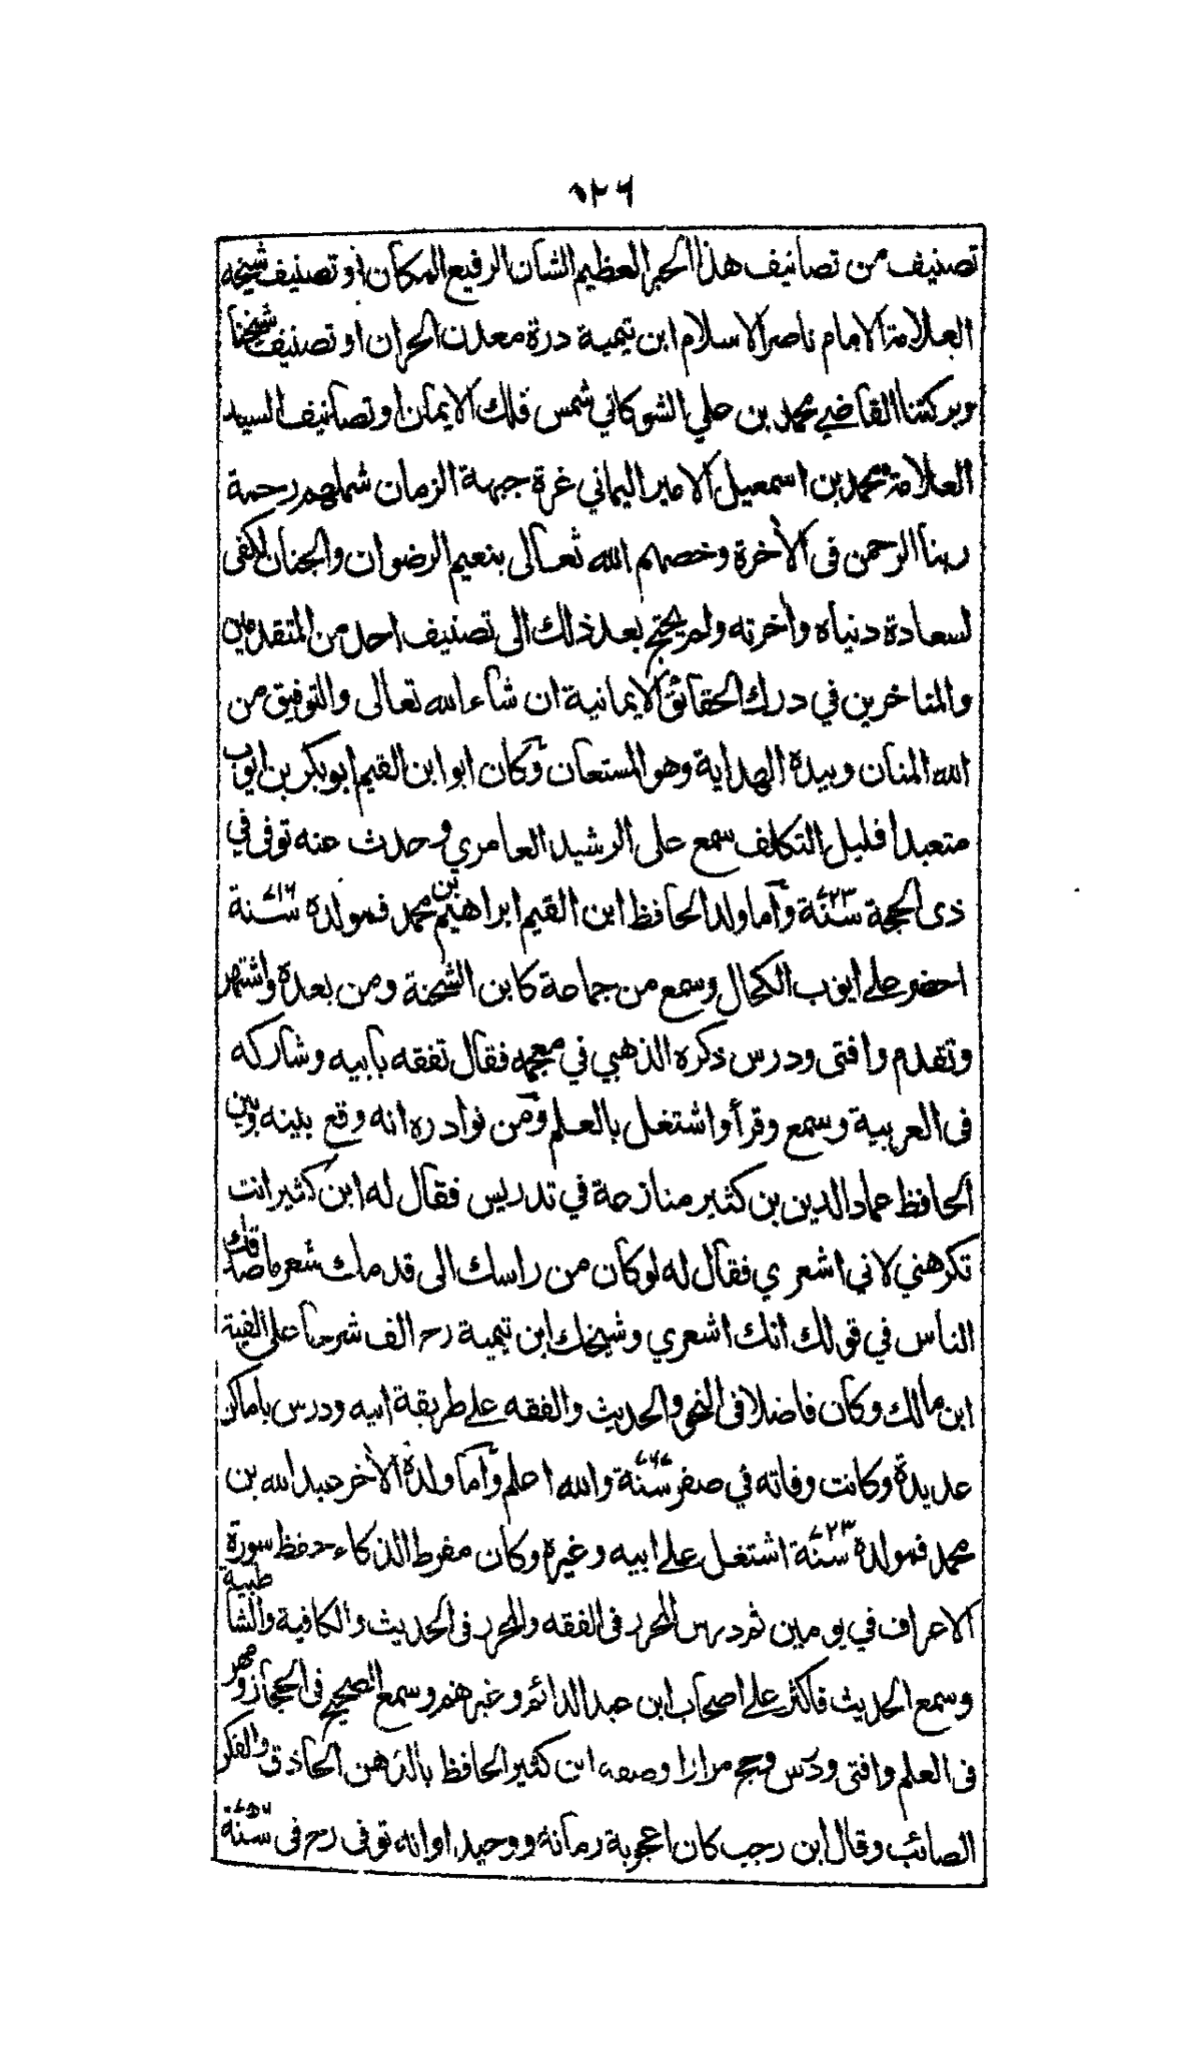 ٥٢٦
تصنيف من تصانيف هذا الحبر العظيم الشان الرفيع المكان او تصنيف شيخه
العلامة الامام ناصر الاسلام ابن تيمية درة معدن الحران او تصنيف شيخنا
وبركتنا القاضي محمد بن علي الشوكاني شمس فلك الايمان او تصانيف السيد
العلامة محمد بن اسمعيل الامير اليماني غرة جبهة الزمان شملهم رحمة
ربنا الرحمن فى الأخرة وخصهم الله تعالى بنعيم الرضوان والجنان لكفى
لسعادة دنياه وأخرته ولم يحتج بعد ذلك الى تصنيف احد من المتقدمين
والمتاخرين في درك الحقائق الايمانية ان شاء الله تعالى والتوفيق من
الله المنان وبيده الهداية وهو المستعان وكان ابو ابن القيم ابو بكر بن ايوب
متعبدا قليل التكلف سمع على الرشيد العامري وحدث عنه توفى في
ذى الحجة سنة ٧٢٣ وأما ولد الحافظ ابن القيم ابراهيم بن محمد فمولده سنة ٧١٦
احضر على ايوب الكحال وسمع من جماعة كابن الشحنة ومن بعده واشتهر
وتقدم وافتى ودرس ذكره الذهبي في معجمه فقال تفقه بابيه وشاركه
فى العربية وسمع وقرأ واشتغل بالعلم ومن نوادره انه وقع بينه وبين
الحافظ عماد الدين بن كثير منازعة في تدريس فقال له ابن كثير انت
تكرهني لاني اشعري فقال له لو كان من راسك الى قدمك شعر ما صدقك
الناس في قولك انك اشعري وشيخك ابن تيمية رح الف شرحا على الفية
ابن مالك وكان فاضلا فى النحو والحديث والفقه على طريقة ابيه ودرس باماكن
عديدة وكانت وفاته في صفر سنة ٧٦٧ والله اعلم وأما ولده الأخر عبد الله بن
محمد فمولده سنة ٧٢٣ اشتغل على ابيه وغيره وكان مفرط الذكاء حفظ سورة
الاعراف في يومين ثم درس المحرر فى الفقه والمحرر فى الحديث والكافية والشاطبية
وسمع الحديث فاكثر على اصحاب ابن عبد الدائم وغيرهم وسمع الصحيح فى الحجاز ومهر
فى العلم وافتى ودرس وحج مرارا وصفه ابن كثير الحافظ بالذهن الحاذق والفكر
الصائب وقال ابن رجب كان اعجوبة زمانه ووحيد اوانه توفى رح فى سنة ٧٥٦